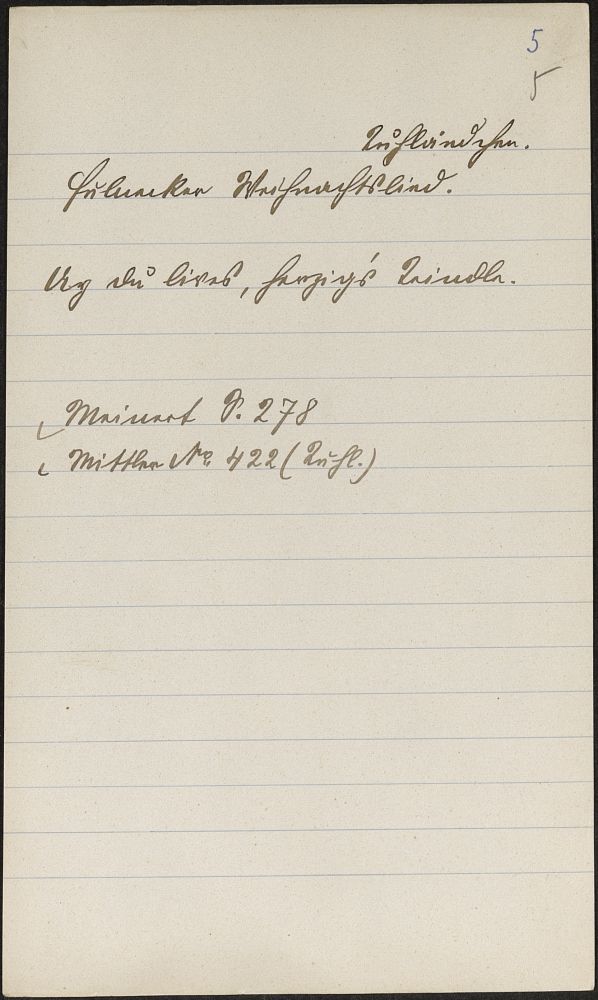 5
5
Kuhländchen.
Fulnecker Weihnachtslied.
Ay du lives, herzig's Keindle.
Meinert S. 278
Mittler No 422 (Kuhl.)